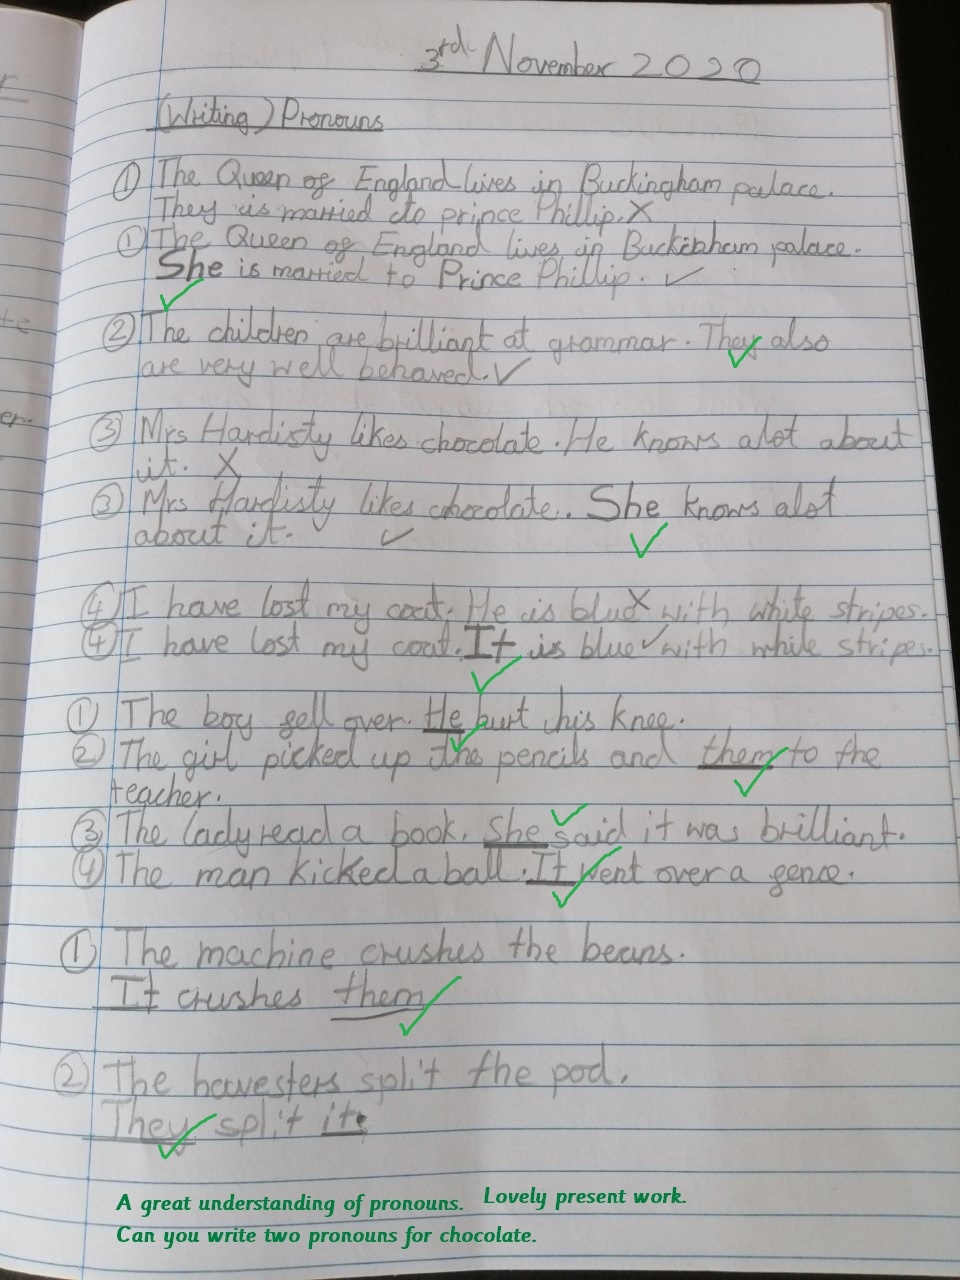 3rd November 2020
(Writing) Pronouns
① The Queen of England lives in Buckingham palace.
They is married to prince Phillip. X
① The Queen of England lives in Buckinbham palace.
She is married to Prince Phillip. ✓
② The children are brilliant at grammar. They also
are very well behaved. ✓
③ Mrs Hardisty likes chocolate. He knows alot about
it. X
③ Mrs Hardisty likes chocolate. She knows alot
about it. ✓
④ I have lost my coat. He is blue X with white stripes.
④ I have lost my coat. It is blue ✓ with white stripes.
① The boy fell over. He hurt his knee.
② The girl picked up the pencils and them to the
teacher.
③ The lady read a book. She said it was brilliant.
④ The man kicked a ball. It went over a fence.
① The machine crushes the beans.
It crushes them
② The havesters split the pod.
They split it.
A great understanding of pronouns. Lovely present work.
Can you write two pronouns for chocolate.